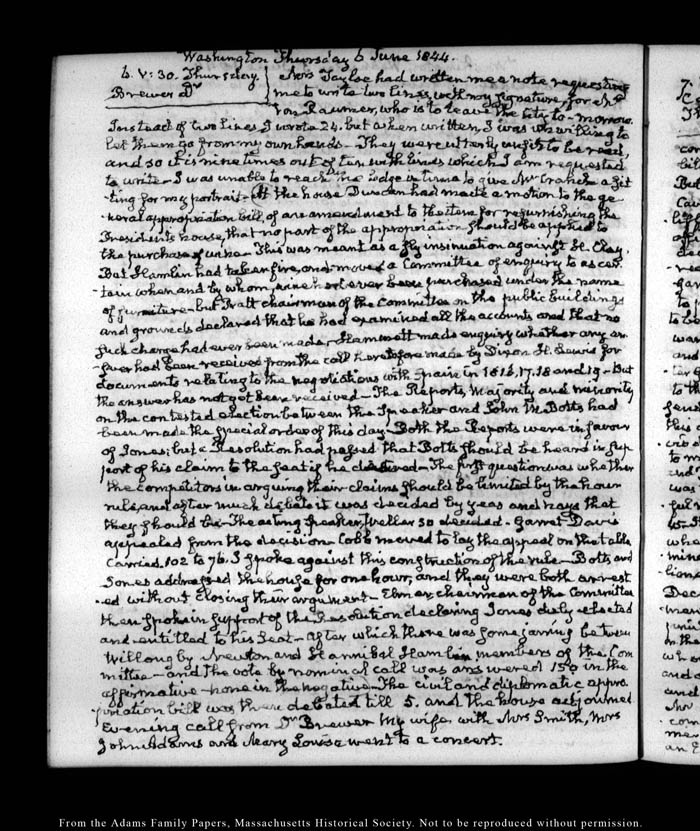 Washington Thursday 6 June 1844.
6. V: 30. Thursday. Mrs Tayloe had written me a note requesting
Brewer Dr me to write two lines, with my signature for Mr
Von Raumer, who is to leave the city to-morrow.
Instead of two lines I wrote 24. but when written, I was unwilling to
let them go from my own hands. They were utterly unfit to be read,
and so it is nine times out of ten with lines which I am requested
to write. I was unable to reach the lodge in time to give Mr Cranch a sit
-ting for my portrait. At the house Duncan had made a motion to the ge
-neral appropriation bill, of an amendment to the item for refurnishing the
Presidents house, that no part of the appropriation should be applied to
the purchase of wine. This was meant as a sly insinuation against H. Clay.
But Hamlin had taken fire, and moved a Committee of enquiry to ascer
-tain when and by whom, wine had ever been purchased under the name
of furniture—but Pratt chairman of the Committee on the public buildings
and grounds declared that he had examined all the accounts and that no
such charge had ever been made. Hammett made enquiry whether any an
-swer had been received from the call heretofore made by Dixon H. Lewis for
documents relating to the negotiations with Spain in 1816, 17. 18 and 19. But
the answer has not yet been received—The Reports, Majority and minority
on the contested election between the Speaker and John M. Botts had
been made the special order of this day. Both the Reports were in favour
of Jones; but a Resolution had passed that Botts should be heard in sup
port of his claim to the seat if he desired—The first question was whether
the competitors in arguing their claims should be limited by the hour
rule, and after much debate it was decided by yeas and nays that
they should be. The acting Speaker, Weller so decided. Garret Davis
appealed from the decision. Cobb moved to lay the appeal on the table
carried. 102 to 76. I spoke against this construction of the rule. Botts and
Jones addressed the house for one hour, and they were both arrest
-ed without closing their argument—Elmer, chairman of the Committee
then spoke in support of the Resolution declaring Jones duly elected
and entitled to his seat—after which there was some jarring between
Willoughby Newton and Hannibal Hamlin members of the Com
mittee—and the vote by nominal call was answered 150 in the
affirmative—none in the negative. The civil and diplomatic appro
-priation bill was then debated till 5. and the house adjourned
Evening call from Dr Brewer My wife with Mrs Smith, Mrs
John Adams and Mary Louisa went to a concert.
From the Adams Family Papers, Massachusetts Historical Society. Not to be reproduced without permission.